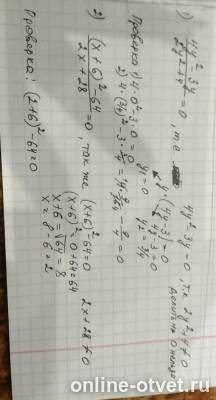 1) 4y²-3y / 2y²+4 = 0, т.е 4y²-3y=0, т.к 2y²+4≠0
делить на 0 нельзя
y(4y-3)=0
4y-3=0
y₁=0 y₂=3/4
Проверка 1) 4·0²-3·0=0
2) 4·(3/4)²-3·3/4=
2) (x+6)²-64 / 2x+28 = 0, так же (x+6)²-64=0 2x+28≠0
(x+6)²=0+64=64
x+6=√64=8
x=8-6=2
Проверка: (2+6)²-64=0
online-otvet.ru